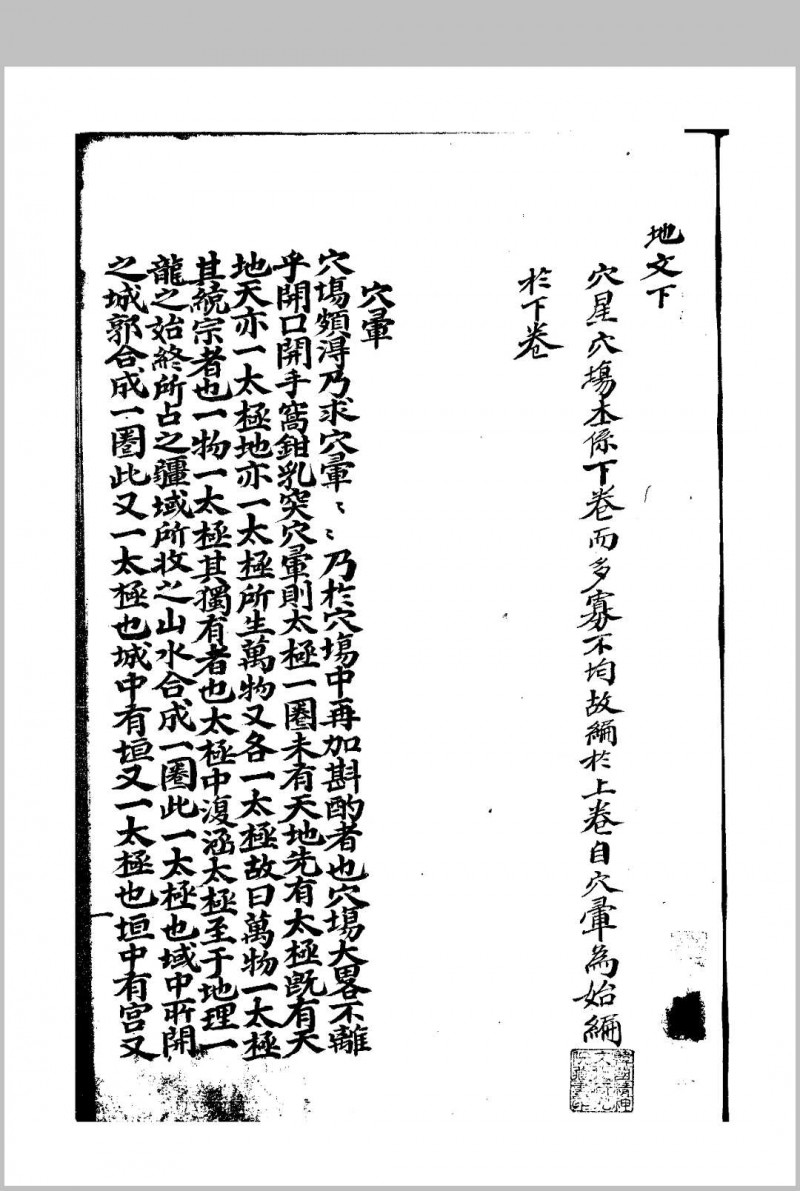 地文下
穴星穴場本係下卷而多寡不均故編於上卷自穴暈為始編
於下卷
穴暈
穴場頗得乃求穴暈〻〻乃於穴場中再加斟酌者也穴場大畧不離
乎開口開手窩鉗乳突穴暈則太極一圈未有天地先有太極既有天
地天亦一太極地亦一太極所生萬物又各一太極故曰萬物一太極
其統宗者也一物一太極其獨有者也太極中復涵太極至于地理一
龍之始終所占之疆域所收之山水合成一圈此一太極也域中所開
之城郭合成一圈此又一太極也城中有垣又一太極也垣中有宮又